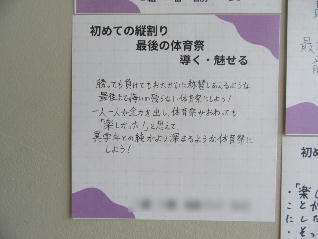 初めての縦割り
最後の体育祭
導く・魅せる
勝っても負けてもおたがいに称賛しあえるような
最後まで悔いが残らない体育祭にしよう!
一人一人が全力を出し、体育祭がおわっても
「楽しかった!」と思えて、
異学年との絆がより深まるような体育祭に
しよう!
初め
・「楽し
ことが
にした